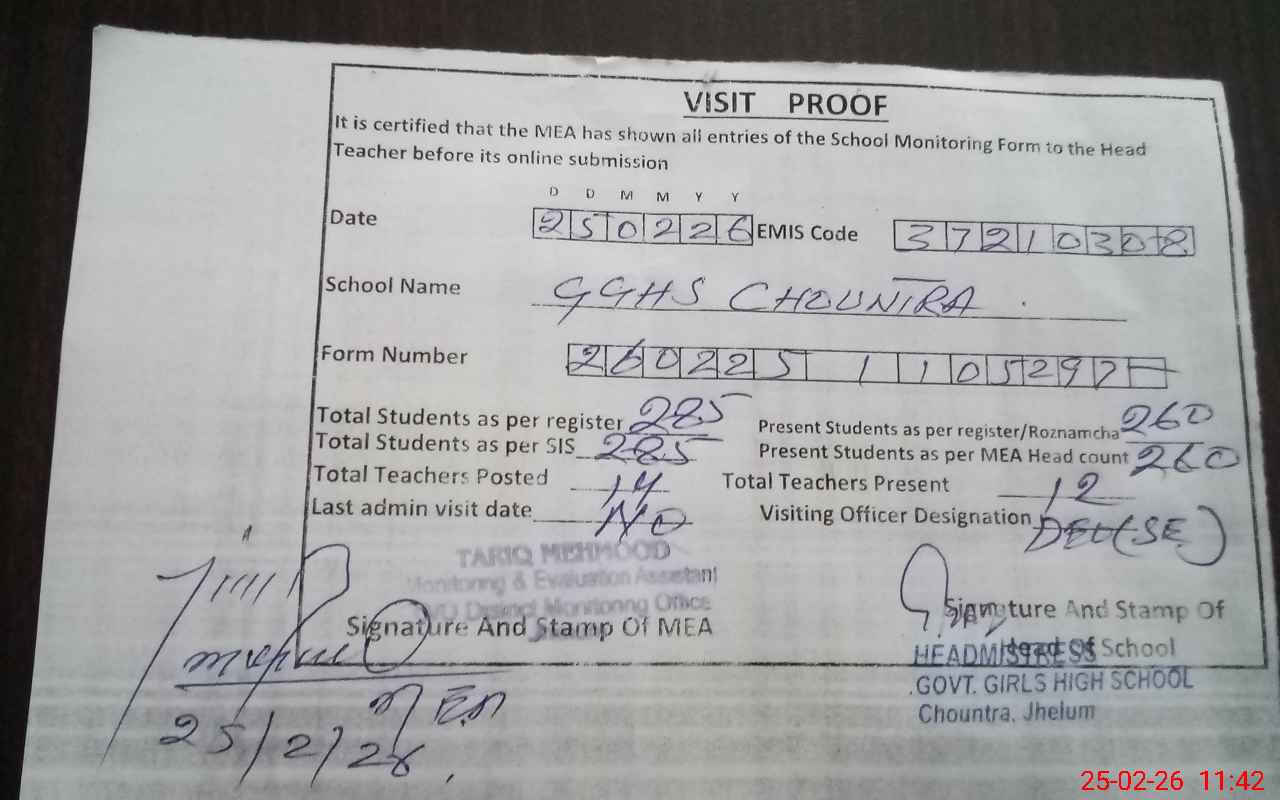 VISIT PROOF
It is certified that the MEA has shown all entries of the School Monitoring Form to the Head
Teacher before its online submission
D D M M Y Y
Date 250226 EMIS Code 37210308
School Name GGHS CHOUNTRA
Form Number 260225 1105297
Total Students as per register 285 Present Students as per register/Roznamcha 260
Total Students as per SIS 285 Present Students as per MEA Head count 260
Total Teachers Posted 14 Total Teachers Present 12
Last admin visit date NO Visiting Officer Designation DEO (SE)
TARIQ MEHMOOD
Monitoring & Evaluation Assistant
O/O District Monitoring Office
Signature And Stamp Of MEA
Signature And Stamp Of
Head Of School
HEADMISTRESS
GOVT. GIRLS HIGH SCHOOL
Chountra, Jhelum
MEA
25/2/26
25-02-26 11:42